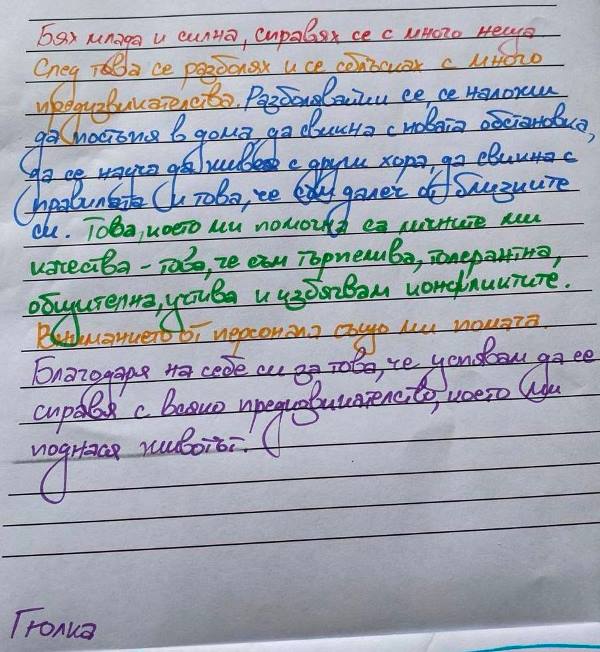 Бях млада и силна, справях се с много неща
След това се разболях и се сблъсках с много
предизвикателства. Разболявайки се, се наложи
да постъпя в дома, да свикна с новата обстановка,
да се науча да живея с други хора, да свикна с
правилата и това, че съм далеч от близките
си. Това, което ми помогна са личните ми
качества - това, че съм търпелива, толерантна,
общителна, учтива и избягвам конфликтите.
Вниманието от персонала също ми помага.
Благодаря на себе си за това, че успявам да се
справя с всяко предизвикателство, което ми
поднася животът.
Гюлка